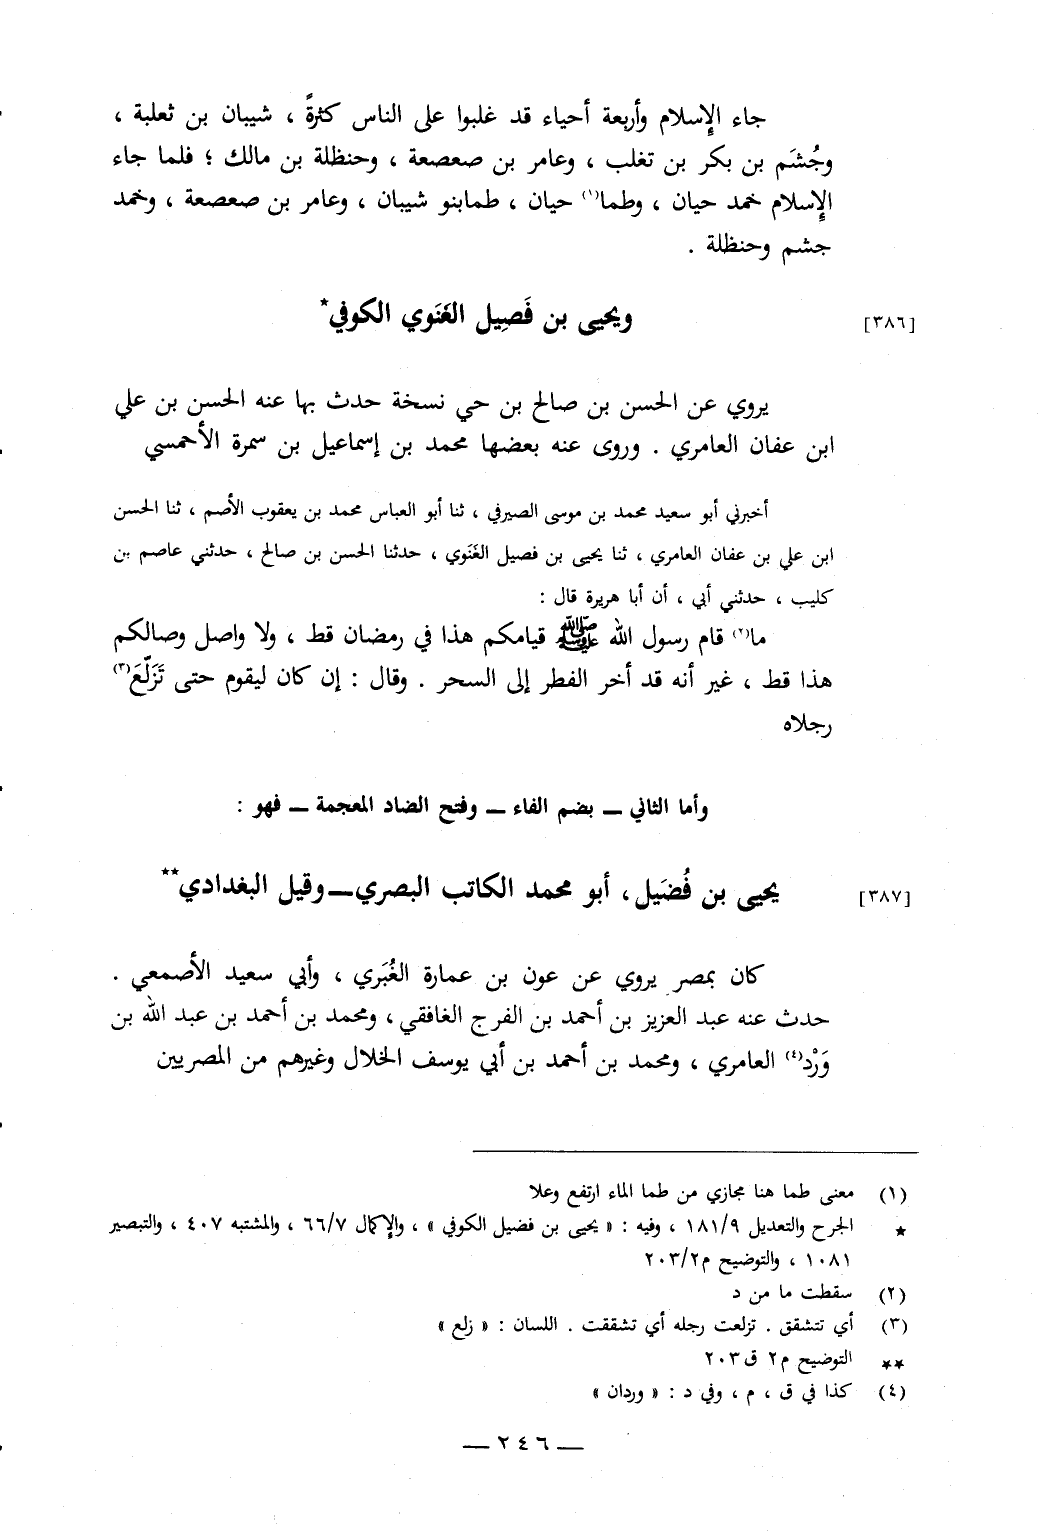 جاء الإسلام وأربعة أحياء قد غلبوا على الناس كثرةً ، شيبان بن ثعلبة ،
وجُشَم بن بكر بن تغلب ، وعامر بن صعصعة ، وحنظلة بن مالك ؛ فلما جاء
الإسلام خمد حيان ، وطما(١) حيان ، طمابنو شيبان ، وعامر بن صعصعة ، وخمد
جشم وحنظلة .
[٣٨٦] ويحيى بن فَصِيل الغَنَوي الكوفي*
يروي عن الحسن بن صالح بن حي نسخة حدث بها عنه الحسن بن علي
ابن عفان العامري . وروى عنه بعضها محمد بن إسماعيل بن سمرة الأحمسي
أخبرني أبو سعيد محمد بن موسى الصيرفي ، ثنا أبو العباس محمد بن يعقوب الأصم ، ثنا الحسن
ابن علي بن عفان العامري ، ثنا يحيى بن فصيل الغَنَوي ، حدثنا الحسن بن صالح ، حدثني عاصم بن
كليب ، حدثني أبي ، أن أبا هريرة قال :
ما(٢) قام رسول الله ﷺ قيامكم هذا في رمضان قط ، ولا واصل وصالكم
هذا قط ، غير أنه قد أخر الفطر إلى السحر . وقال : إن كان ليقوم حتى تَزَلَّعَ(٣)
رجلاه
وأما الثاني ــ بضم الفاء ــ وفتح الضاد المعجمة ــ فهو :
[٣٨٧] يحيى بن فُضَيل ، أبو محمد الكاتب البصري ــ وقيل البغدادي**
كان بمصر يروي عن عون بن عمارة الغُبَري ، وأبي سعيد الأصمعي .
حدث عنه عبد العزيز بن أحمد بن الفرج الغافقي ، ومحمد بن أحمد بن عبد الله بن
وَرْد(٤) العامري ، ومحمد بن أحمد بن أبي يوسف الخلال وغيرهم من المصريين
(١) معنى طما هنا مجازي من طما الماء ارتفع وعلا
* الجرح والتعديل ١٨١/٩ ، وفيه : « يحيى بن فضيل الكوفي » ، والإكمال ٦٦/٧ ، والمشتبه ٤٠٧ ، والتبصير
١٠٨١ ، والتوضيح م٢٠٣/٢
(٢) سقطت ما من د
(٣) أي تتشقق . تزلعت رجله أي تشققت . اللسان : « زلع »
** التوضيح م٢ ق٢٠٣
(٤) كذا في ق ، م ، وفي د : « وردان »
ــ ٢٤٦ ــ